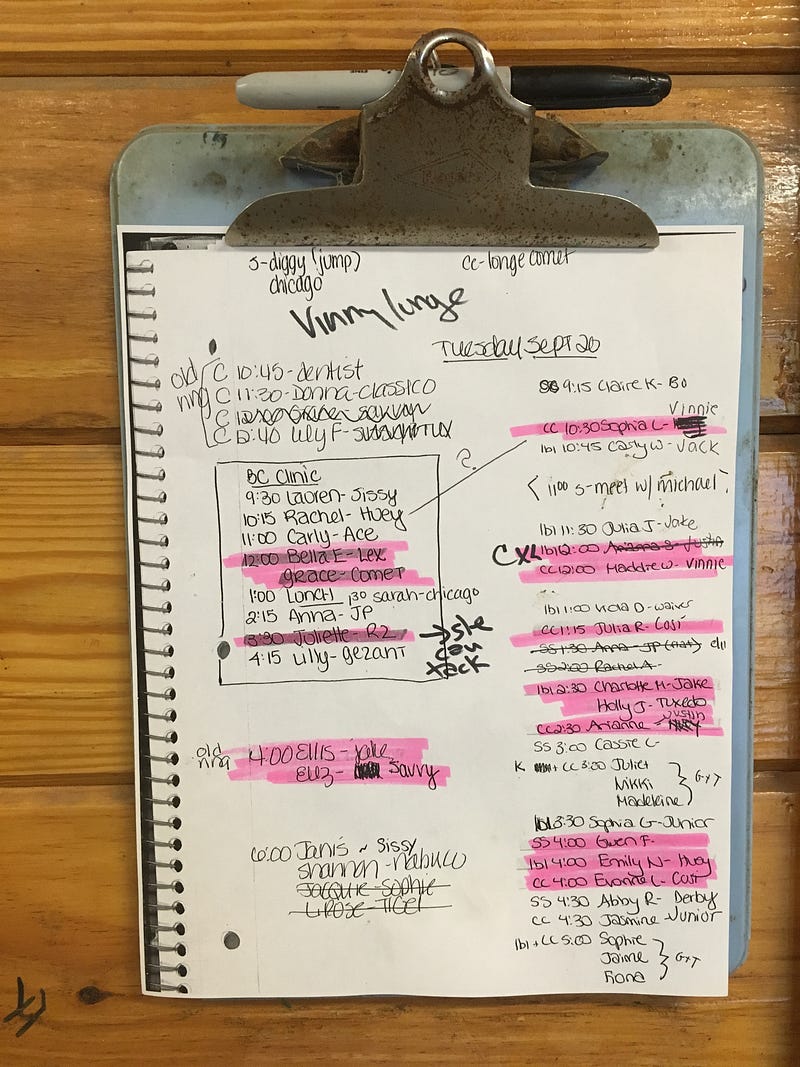 FINE
S-diggy (jump)
chicago
CC-longe comet
Vinny longe
Tuesday Sept 20
old
rng
C 10:45-dentist
C 11:30-Donna-classico
C
C 12:40 Lily F-
BC Clinic
9:30 Lauren-Sissy
10:15 Rachel-Huey
11:00 Carly-Ace
12:00 Bella E-Lex
Grace-Comet
1:00 Lunch 130 sarah-chicago
2:15 Anna-JP
3:30 Joliette-R2
4:15 Lilly-gezant
?
old
rng
4:00 Ellis-Jake
Eliz- Savvy
6:00 Janis ~ Sissy
shannon-nabuco
Jacquie-Sophie
L Rose-Tigel
SS 9:15 Claire K-Bo
Vinnie
CC 10:30 Sophia L-
lbl 10:45 Carly W-Jack
< 11:00 S-meet w/ michael >
lbl 11:30 Julia J-Jake
CXL lbl 12:00 Arianna S-Justin
CC 12:00 Maddie W-Vinnie
lbl 1:00 D-
CC 1:15 Julia R-Cosi
SS 1:30 Anna-JP (flat)
SS 2:00 Rachel A-
lbl 2:30 Charlotte M-Jake
Holly J-Tuxedo
Justin
CC 2:30 Arianne-
SS 3:00 Cassie L
K + CC 3:30 Juliet
Nikki
Madeleine
GxT
lbl 3:30 Sophia G-Junior
SS 4:00 Gwen F-
lbl 4:00 Emily N-Huey
CC 4:00 Evonne L-Cosi
SS 4:30 Abby R-Derby
CC 4:30 Jasmine-Junior
lbl + CC 5:00 Sophie
Jaime
Fiona
GxT